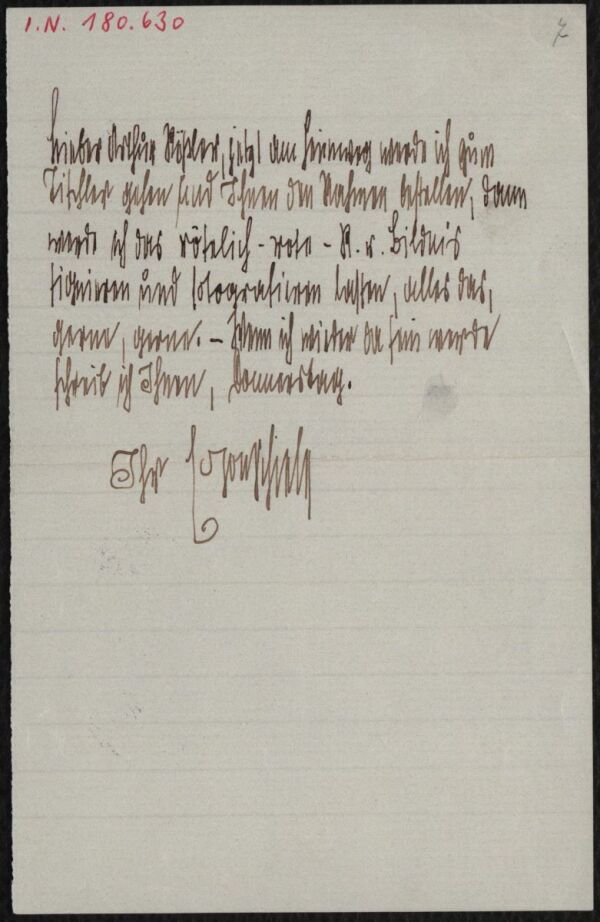 I.N. 180.630
7
Lieber Arthur Rößler, jetzt am Heimweg werde ich zum
Tischler gehen und Ihnen den Rahmen bestellen, dann
werde ich das rötelich - rote - R. v. Bildnis
signieren und fotografieren lassen, alles das,
gerne, gerne. – Wenn ich wieder da sein werde
schreib ich Ihnen, Donnerstag.
Ihr Egon Schiele